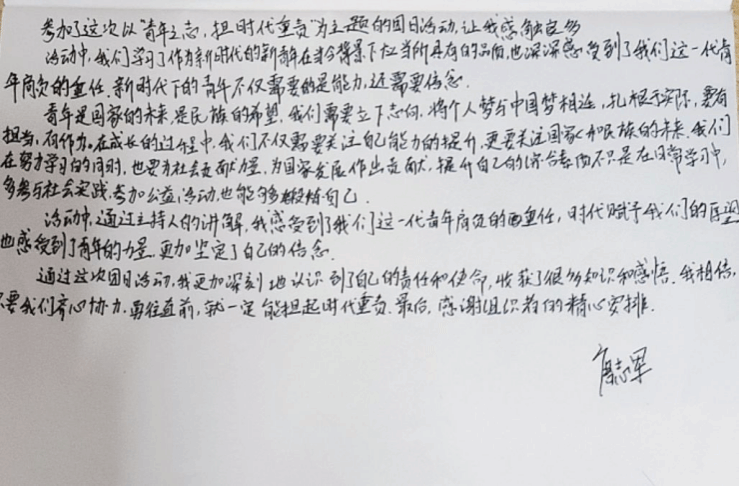 参加了这次以“青年之志,担时代重责”为主题的团日活动,让我感触良多
活动中,我们学习了作为新时代的新青年在当今背景下应当所具有的品质,也深深感受到了我们这一代青
年肩负的重任.新时代下的青年不仅需要的是能力,还需要信念.
青年是国家的未来,是民族的希望,我们需要立下志向,将个人梦与中国梦相连,扎根于实际,要有
担当,有作为。在成长的过程中,我们不仅需要关注自己能力的提升,更要关注国家和民族的未来.我们
在努力学习的同时,也要为社会贡献力量,为国家发展作出贡献,提升自己的综合素质不只是在日常学习中,
多参与社会实践,参加公益活动,也能够多锻炼自己.
活动中,通过主持人的讲解,我感受到了我们这一代青年肩负的重任,时代赋予我们的
也感受到了青年的力量,更加坚定了自己的信念.
通过这次团日活动,我更加深刻地认识到了自己的责任和使命,收获了很多知识和感悟.我相信,
只要我们齐心协力,勇往直前,就一定能担起时代重责.最后,感谢组织者的精心安排.
志军